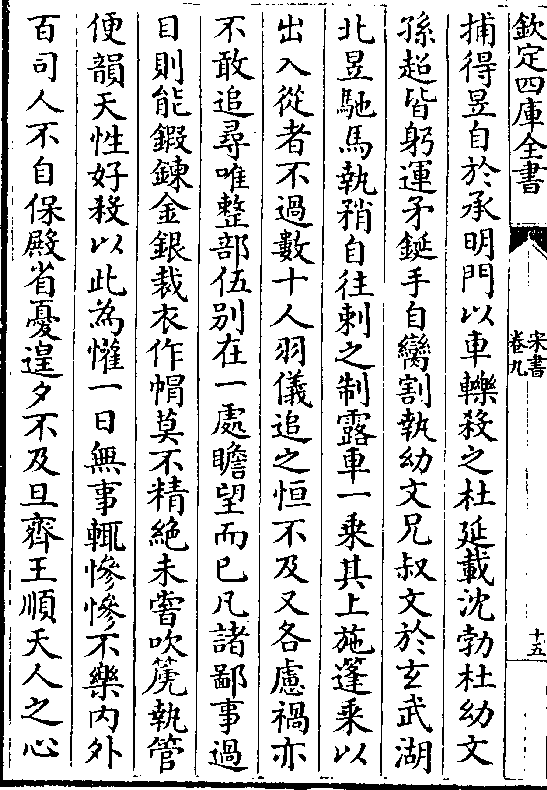 欽定四庫全書
宋書
卷九
十五
捕得昱自於承明門以車轢殺之杜延載沈勃杜幼文
孫超皆躬運矛鋋手自臠割執幼文兄叔文於玄武湖
北昱馳馬執矟自往刺之制露車一乗其上施蓬乗以
出入從者不過數十人羽儀追之恒不及又各慮禍亦
不敢追尋唯整部伍别在一處瞻望而已凡諸鄙事過
目則能鍜鍊金銀裁衣作帽莫不精絶未嘗吹篪執管
便韻天性好殺以此為懽一日無事輒慘慘不樂内外
百司人不自保殿省憂遑夕不及旦齊王順天人之心